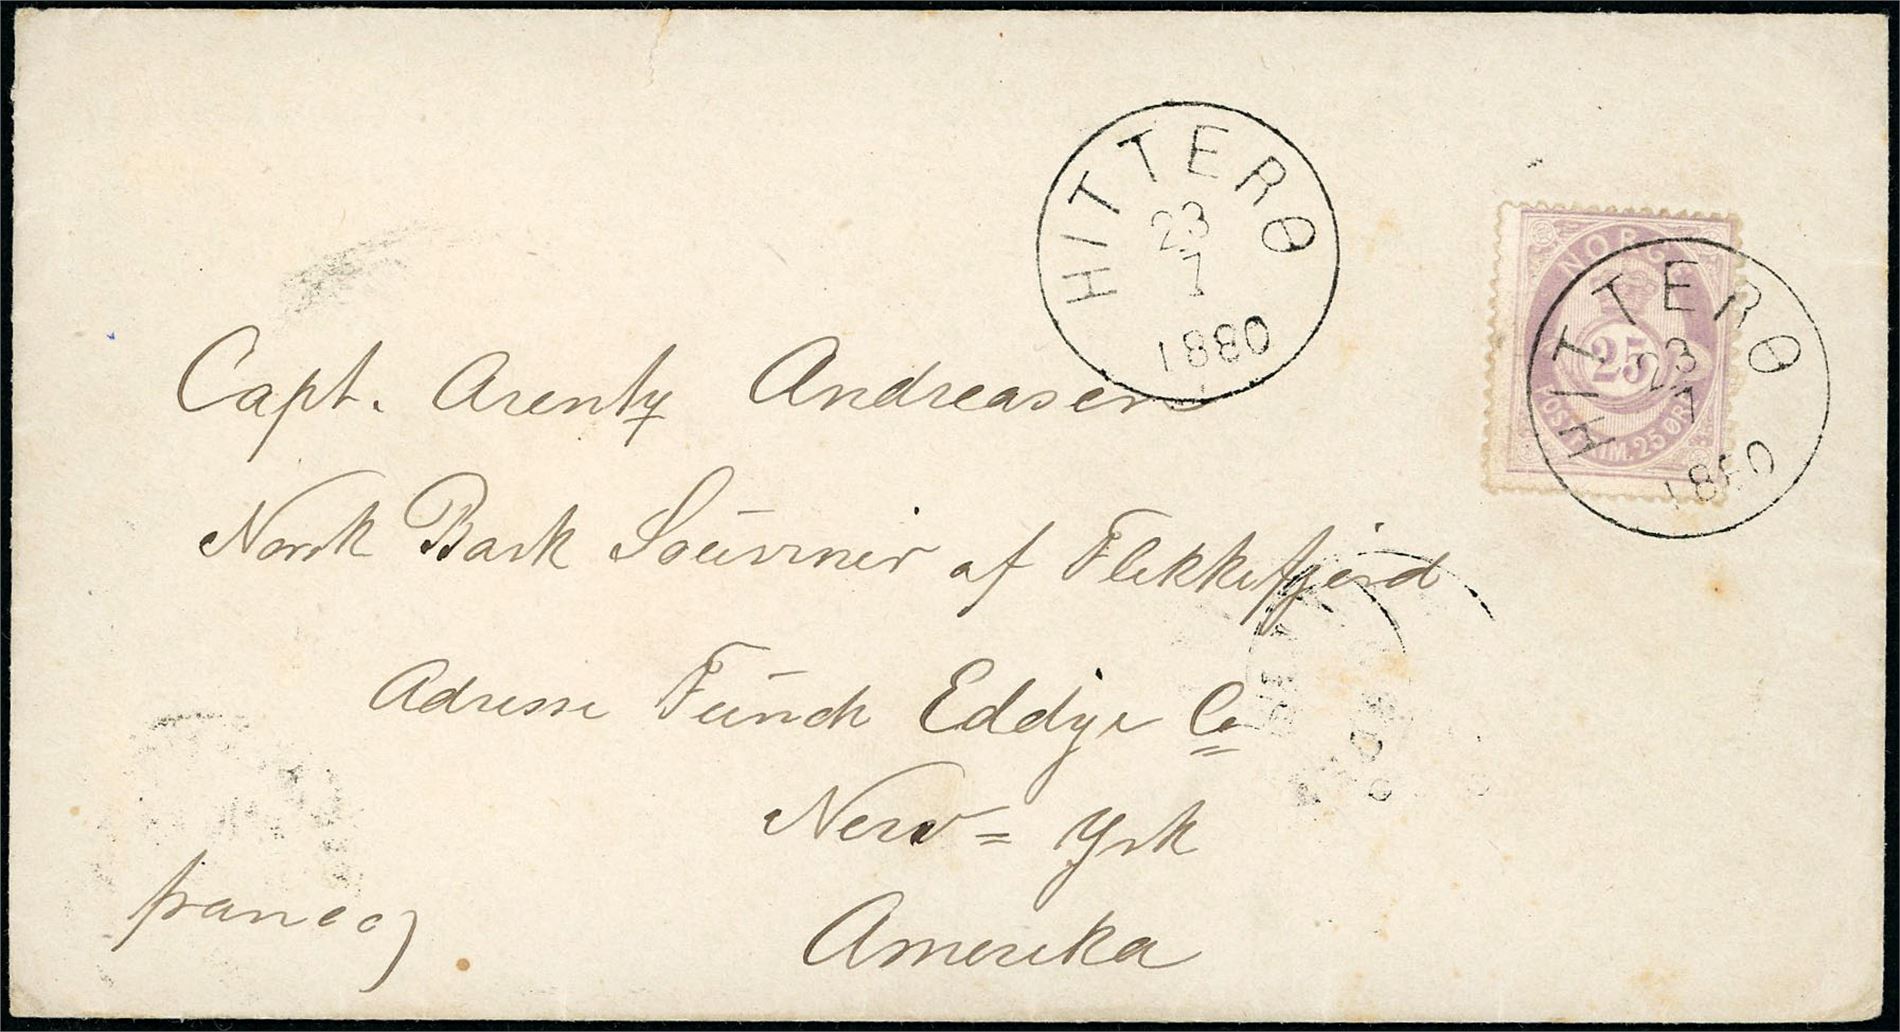 HITTERØ
23
7
1880
NORGE
25
POSTFRIM. 25 ØRE
HITTERØ
23
7
1880
Capt. Arentz Andreasen
Norsk Bark Souvenir af Flekkefjord
Adresse Funch Eddye Co
New=York
Amerika
franco)